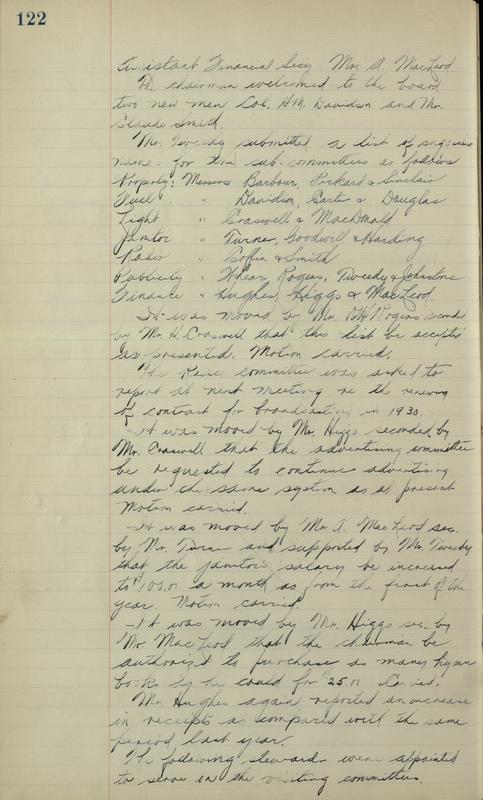 122
Assistant Financial Secy Mr. A. MacLeod.
The chairman welcomed to the board
two new men Col. H.M. Davidson and Mr.
Claude Smith.
Mr. Tweedy submitted a list of
names for the sub-committees as follows
Property: Messers Barbour, Pickard & Sinclair
Fuel " Davidson, Carter & Douglas
Light " Craswell & MacDonald
Janitor " Turner, Goodwill & Harding
Radio " Coffin & Smith
Publicity " Whear, Rogers, Tweedy & Johnstone
Finance " Hughes, Higgs & MacLeod.
It was moved by Mr. Rogers seconded
by Mr. H. Craswell that this list be accepted
as presented. Motion carried.
The committee was asked to
report at next meeting re the renewing
of contract for broadcasting in 1930.
It was moved by Mr. Higgs seconded by
Mr. Craswell that the advertising committee
be requested to continue advertising
under the same system as at present
Motion carried.
It was moved by Mr. A. MacLeod sec.
by Mr. Turner and supported by Mr. Tweedy
that the janitor's salary be increased
to a month as from the first of the
year. Motion carried.
It was moved by Mr. Higgs sec. by
Mr. MacLeod that the chairman be
authorized to purchase as many hymn
books as he could for $25.00 Carried.
Mr. Hughes again reported an increase
in receipts as compared with the same
period last year.
The following stewards were appointed
to serve in the visiting committee.